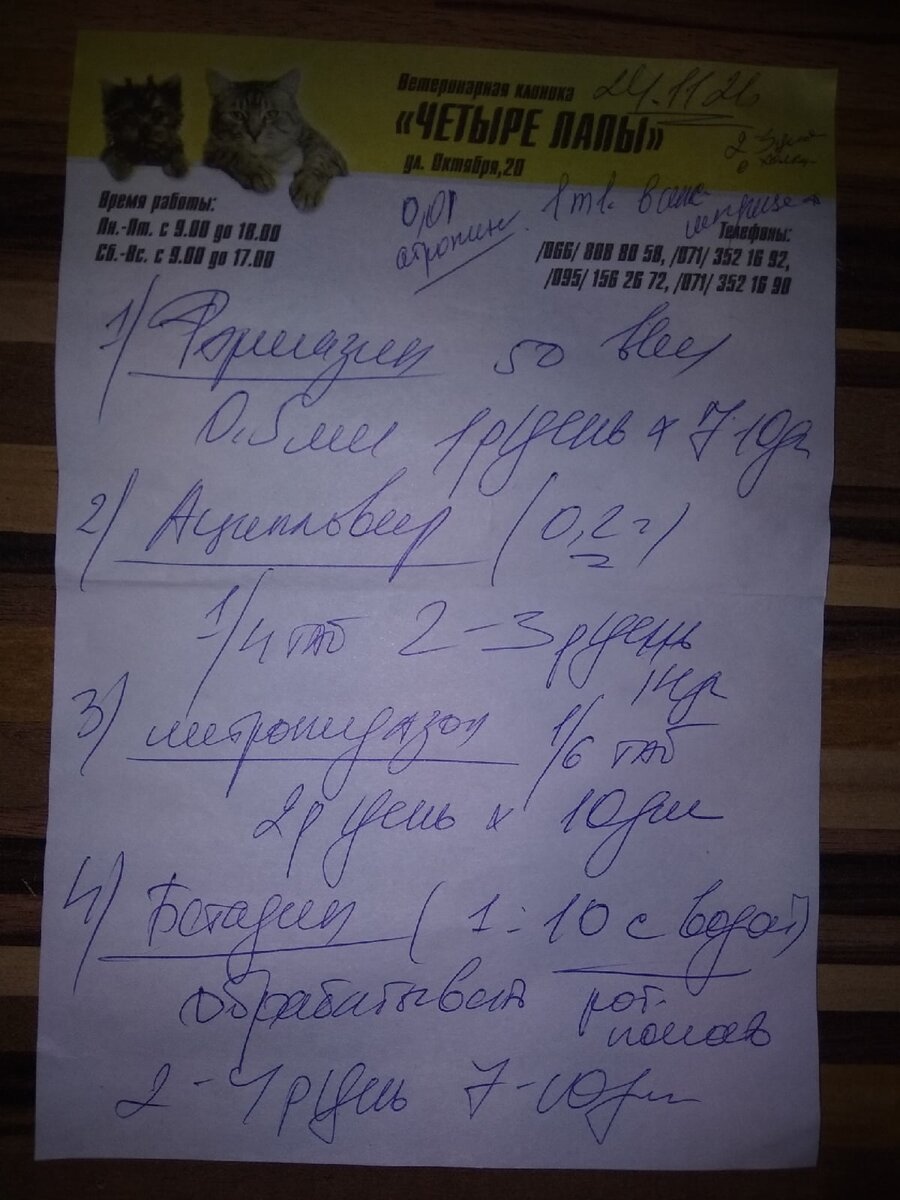 Ветеринарная клиника
24.11.21
«ЧЕТЫРЕ ЛАПЫ»
ул. Октября,20
Время работы:
Пн.-Пт. с 9.00 до 18.00
Сб.-Вс. с 9.00 до 17.00
0,01
атропин
Телефоны:
/066/ 808 80 58, /071/ 352 16 92,
/095/ 156 26 72, /071/ 352 16 90
1) 50
0,5мл 1р/день х 7-10дн
2) Ацикловир (0,2г)
1/4 таб 2-3р/день
3) метронидазол 1/6 таб
2р/день х 10дн
4) Бетадин (1:10 с водой)
обрабатывать рот.
полость
2-4р/день 7-10дн